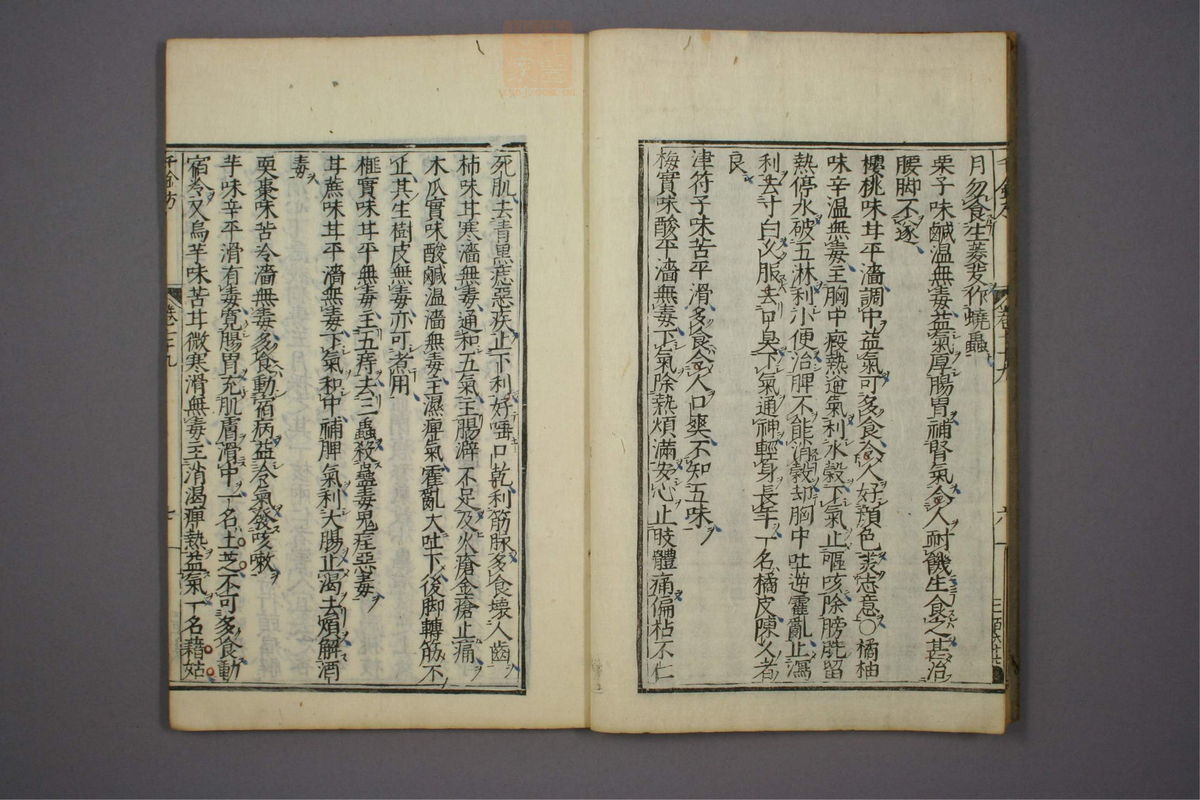 月勿食生菱芰作蟯蟲
栗子味鹹温無毒益氣厚腸胃補腎氣令人耐饑生食之甚治
腰脚不遂
櫻桃味甘平濇調中益氣可多食令人好顔色美志意○橘柚
味辛温無毒主胸中瘕熱逆氣利水穀下氣止嘔咳除膀胱留
熱停水破五淋利小便治脾不能消穀却胸中吐逆霍亂止瀉
利去寸白久服去口臭下氣通神輕身長年一名橘皮陳久者
良
津符子味苦平滑多食令人口爽不知五味
梅實味酸平濇無毒下氣除熱煩滿安心止肢體痛偏枯不仁
死肌去青黑痣惡疾止下利好唾口乾利筋脉多食壊人齒
柿味甘寒濇無毒通和五氣主腸澼不足及火瘡金瘡止痛
木瓜實味酸鹹温濇無毒主濕痺氣霍亂大吐下後脚轉筋不
止其生樹皮無毒亦可煮用
榧實味甘平無毒主五痔去三蟲殺蠱毒鬼疰惡毒
甘蔗味甘平濇無毒下氣和中補脾氣利大腸止渴去煩解酒
毒
耎棗味苦冷濇無毒多食動宿病益冷氣發咳嗽
芋味辛平滑有毒寛腸胃充肌膚滑中一名土芝不可多食動
宿冷又烏芋味苦甘微寒滑無毒主消渴痺熱益氣一名藉姑
千金方
卷二十九